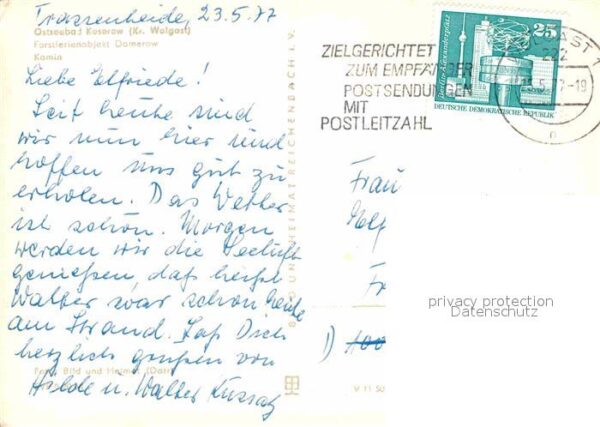 Trassenheide, 23.5.77
Ostseebad Koserow (Kr. Wolgast)
Forstferienobjekt Damerow
Kamin
Liebe Elfriede!
Seit heute sind
wir nun hier und
hoffen uns gut zu
erholen. Das Wetter
ist schön. Morgen
werden wir die Seeluft
genießen, daß heißt
Walter war schon heute
am Strand. Laß Dich
herzlich grüßen von
Hilde u. Walter
Bild und Heimat
BILD UND HEIMAT REICHENBACH I. V.
V 11 50
ZIELGERICHTET
ZUM EMPFÄNGER
POSTSENDUNGEN
MIT
POSTLEITZAHL
25
Berlin-Alexanderplatz
DEUTSCHE DEMOKRATISCHE REPUBLIK
AST 1
222
-19
Frau
Elf
Fr
privacy protection
Datenschutz